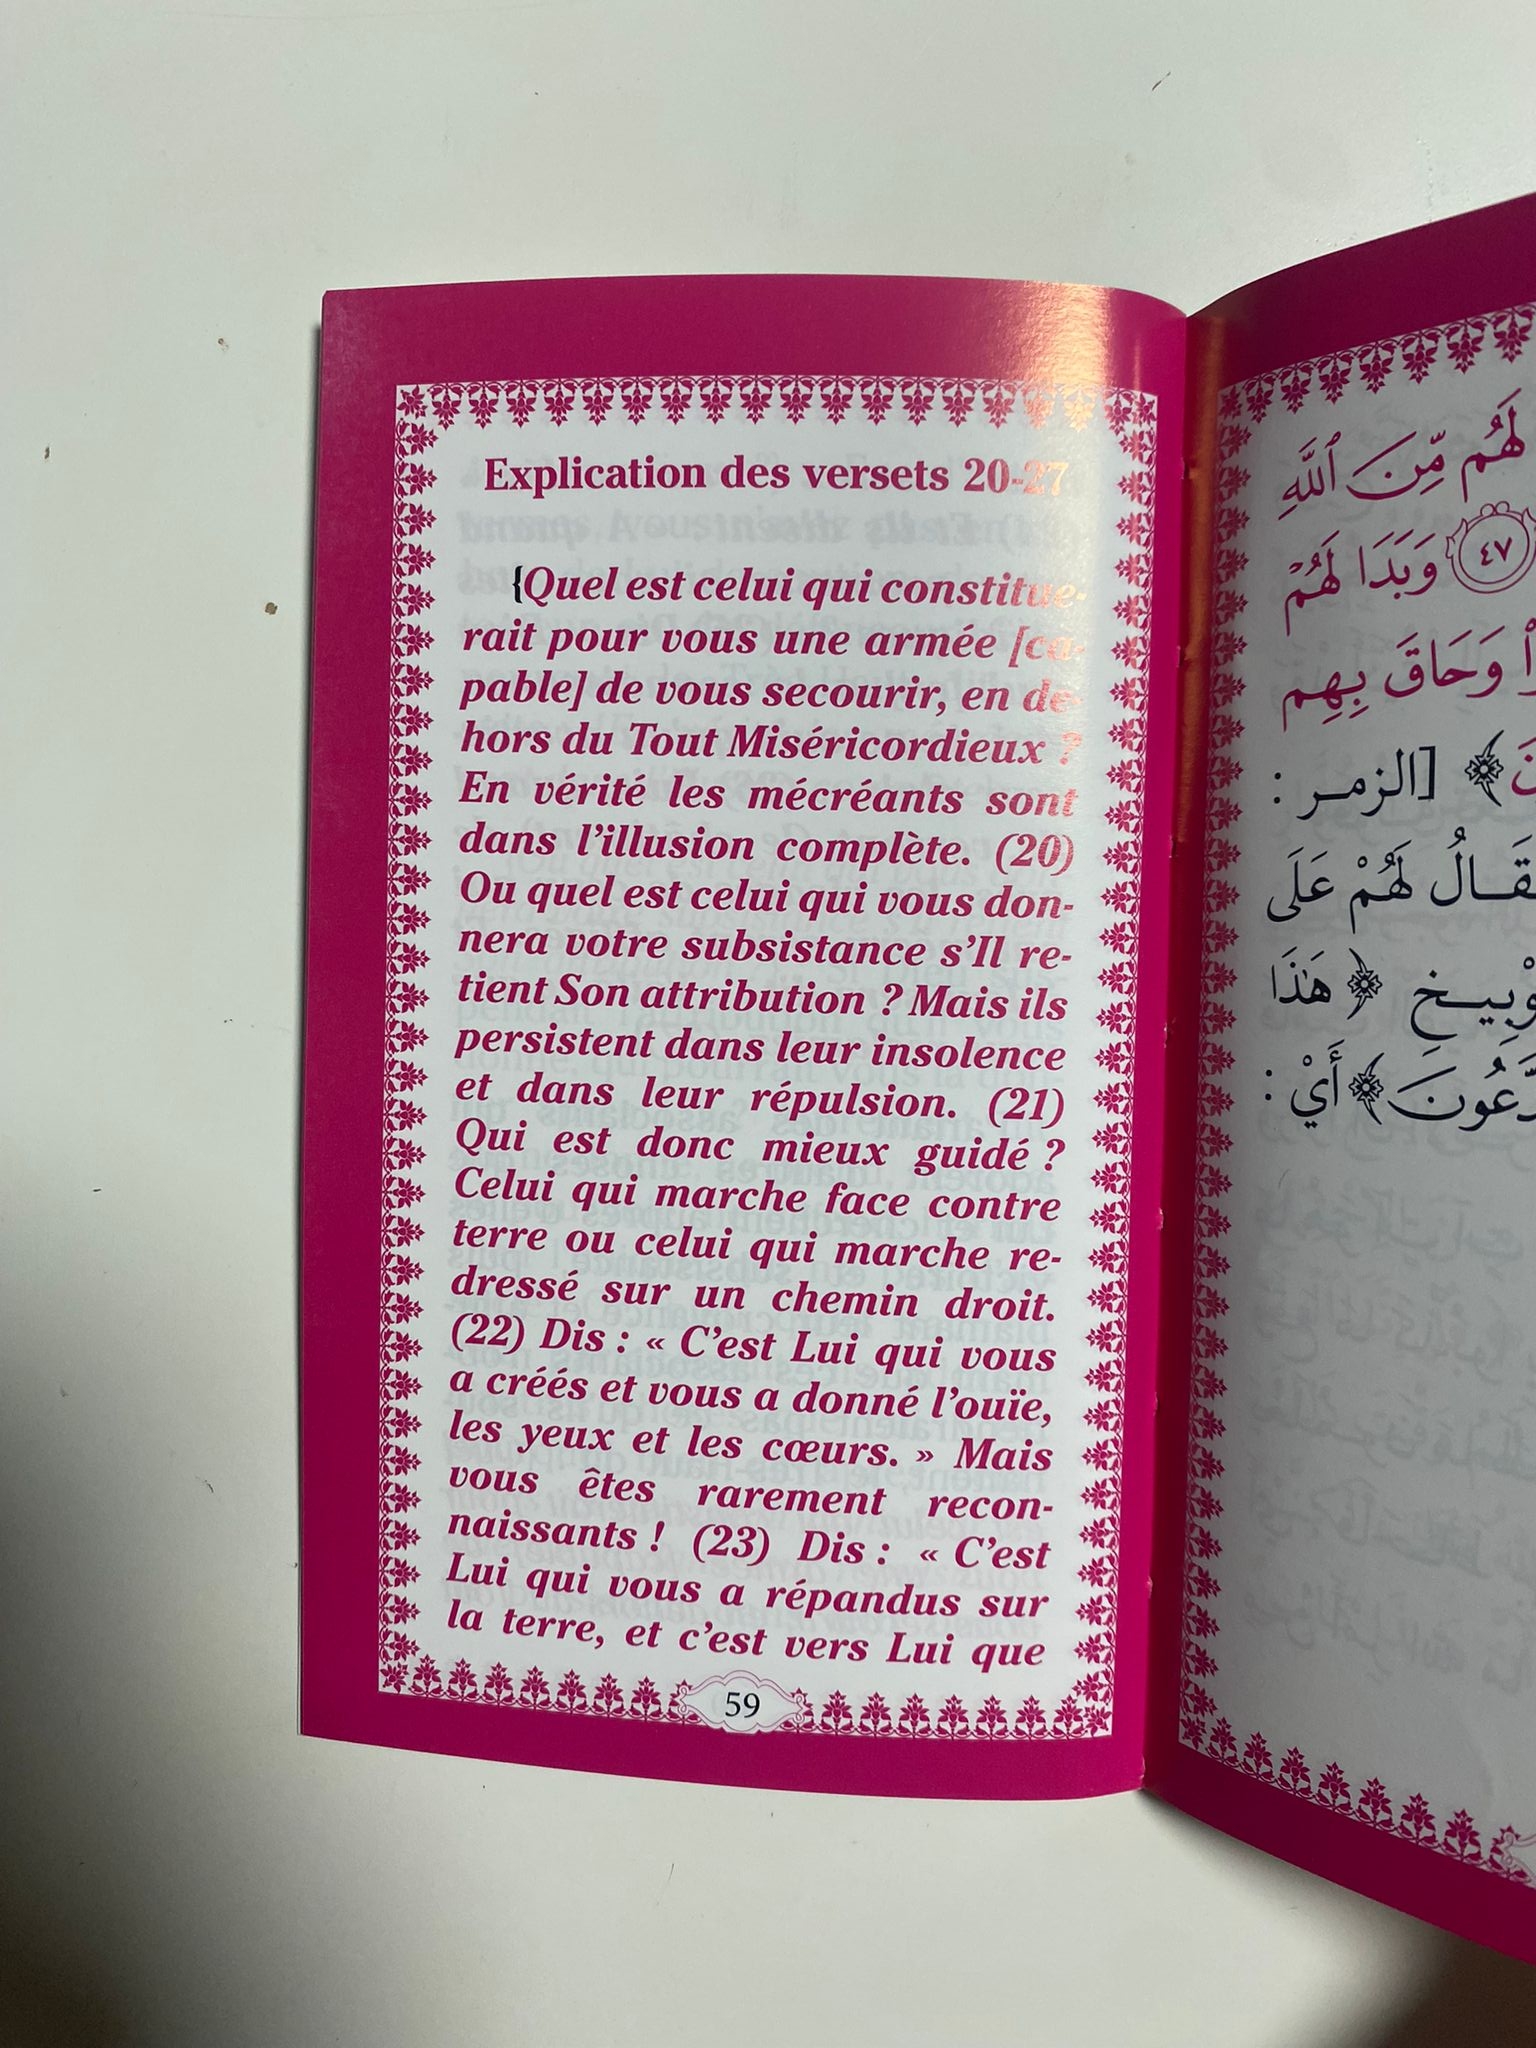 Explication des versets 20-27
{Quel est celui qui constitue-
rait pour vous une armée [ca-
pable] de vous secourir, en de-
hors du Tout Miséricordieux ?
En vérité les mécréants sont
dans l’illusion complète. (20)
Ou quel est celui qui vous don-
nera votre subsistance s’Il re-
tient Son attribution ? Mais ils
persistent dans leur insolence
et dans leur répulsion. (21)
Qui est donc mieux guidé ?
Celui qui marche face contre
terre ou celui qui marche re-
dressé sur un chemin droit.
(22) Dis : « C’est Lui qui vous
a créés et vous a donné l’ouïe,
les yeux et les cœurs. » Mais
vous êtes rarement recon-
naissants ! (23) Dis : « C’est
Lui qui vous a répandus sur
la terre, et c’est vers Lui que
59
لَهُم مِّنَ ٱللَّهِ
٤٧ وَبَدَا لَهُمْ
وَحَاقَ بِهِم
﴾ [الزمر :
لَهُمْ عَلَى
﴿هَٰذَا
﴾ أَيْ :